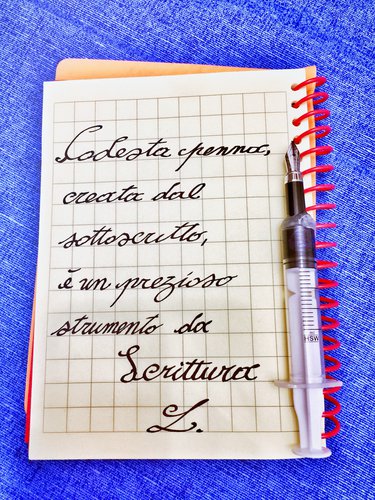 Codesta penna,
creata dal
sottoscritto,
è un prezioso
strumento da
Scrittura
L.
HSW